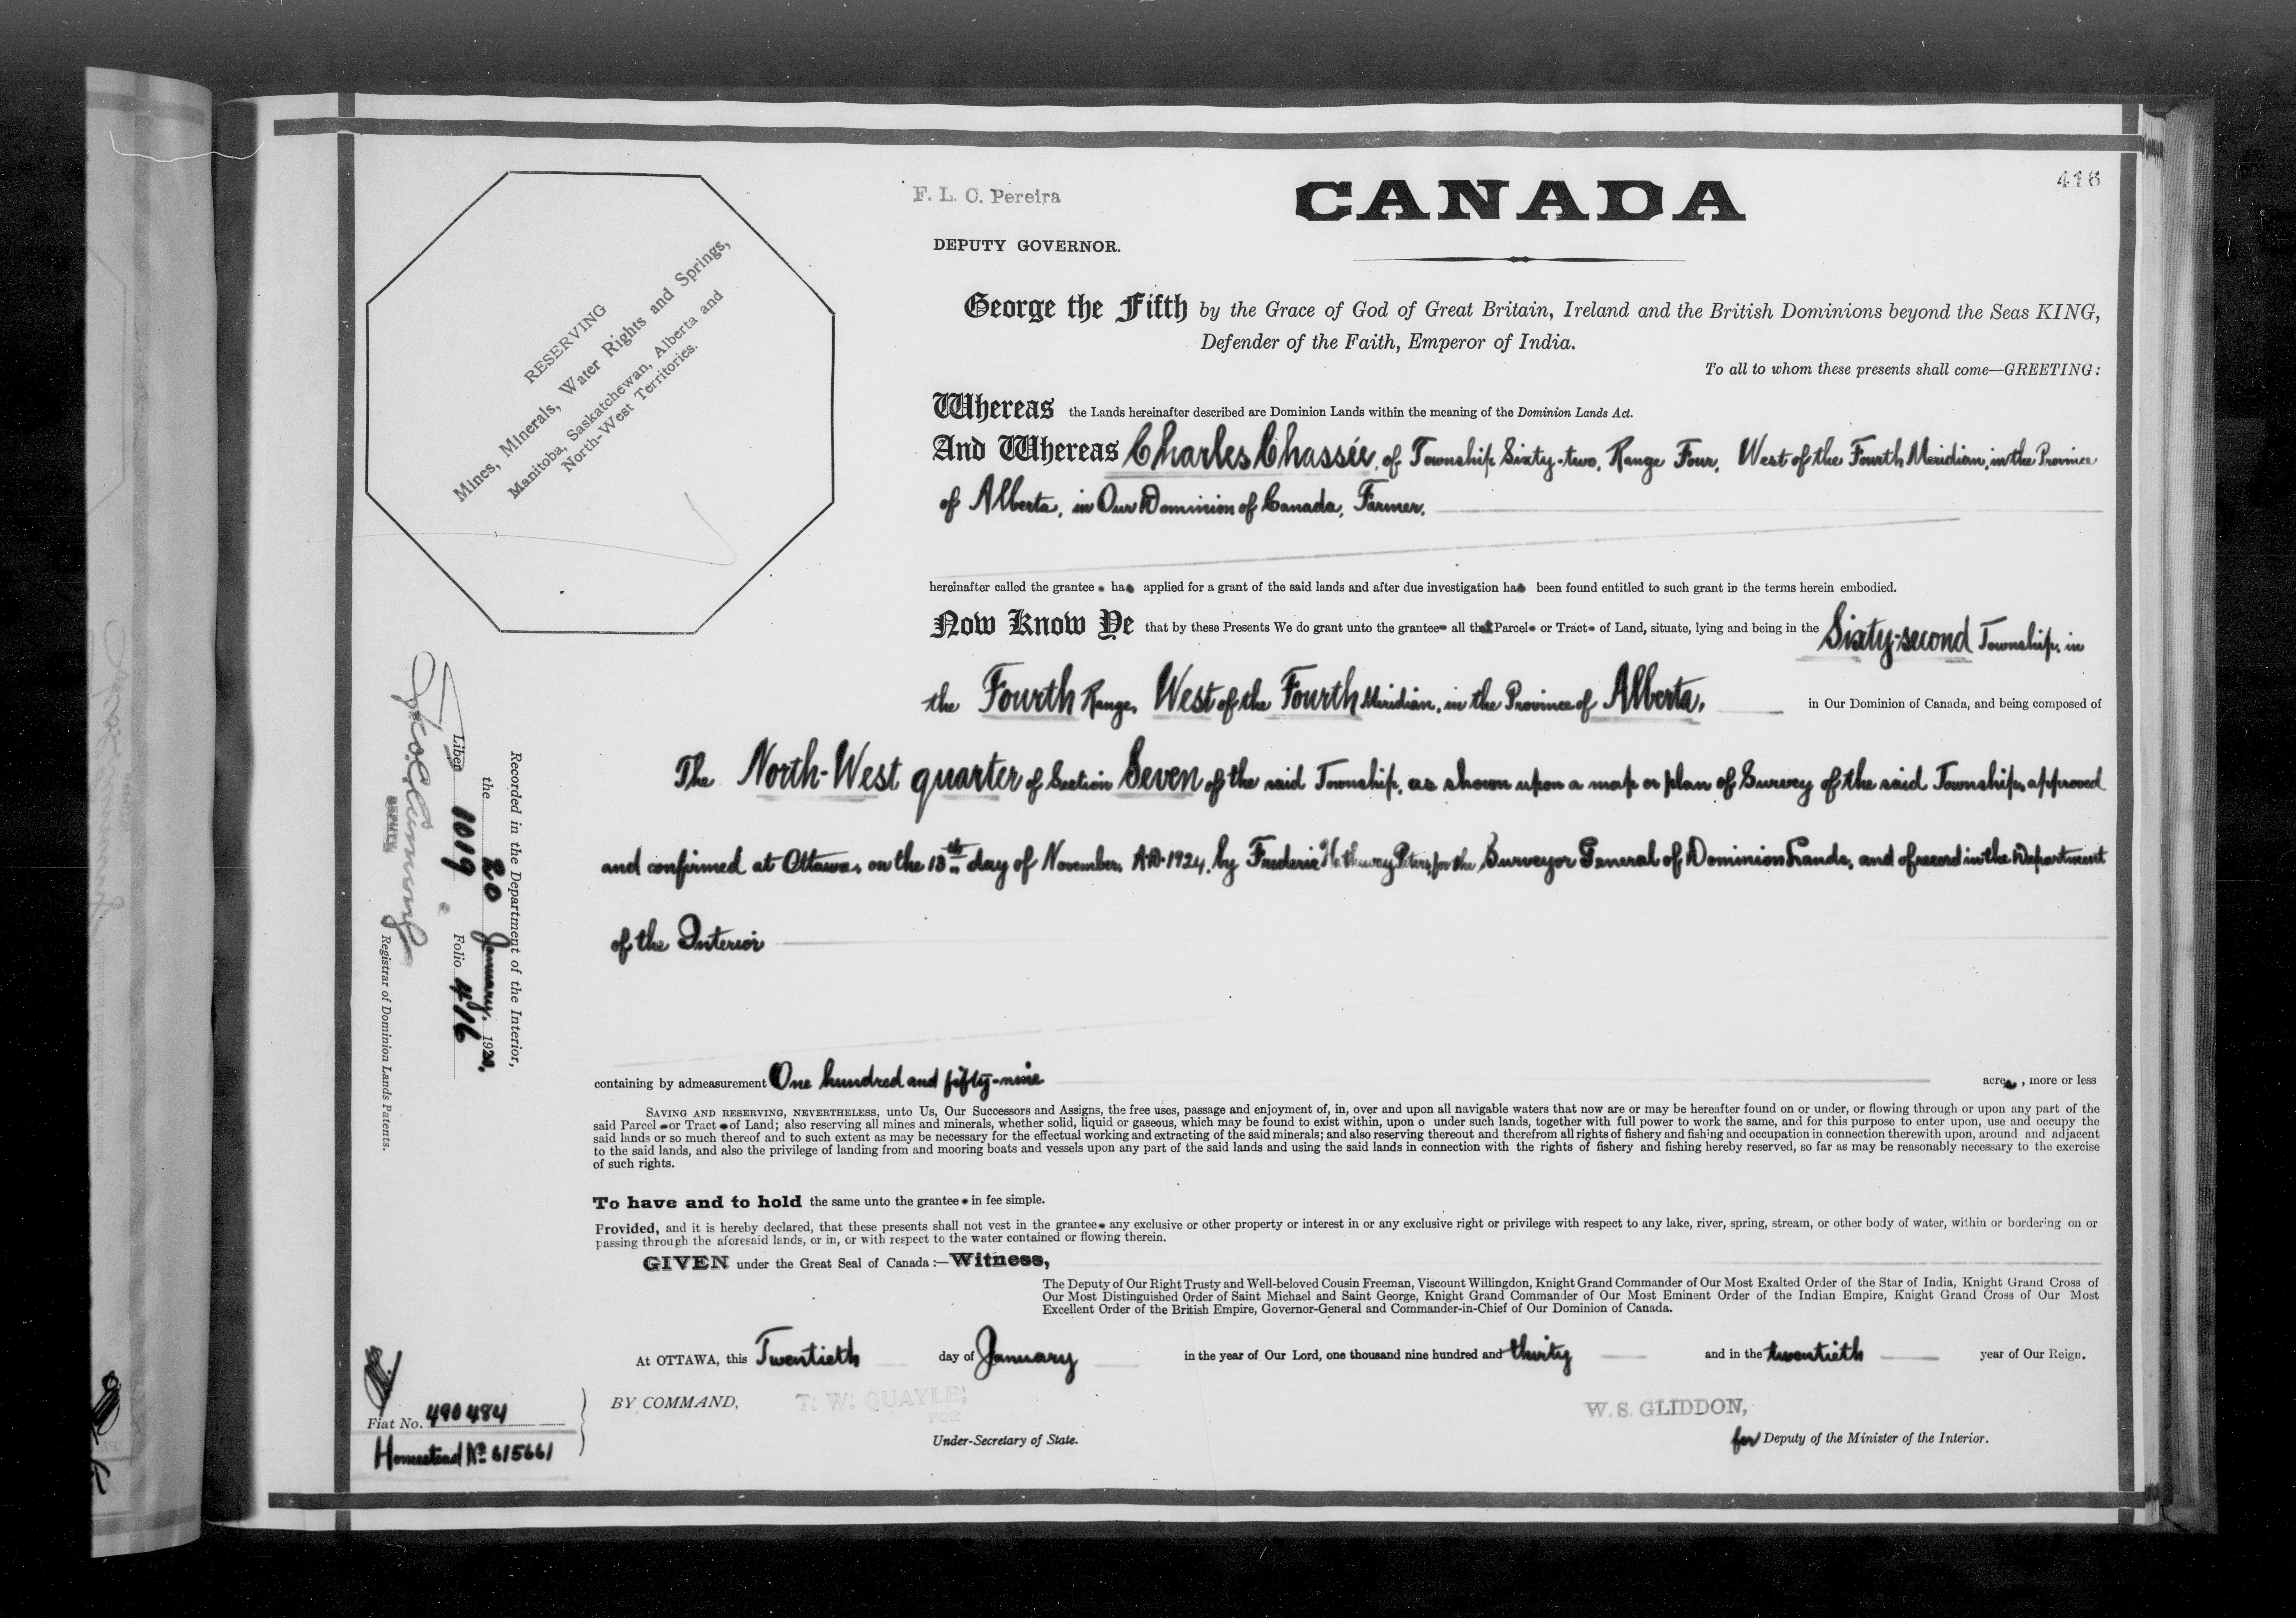 416
F. L. C. Pereira
CANADA
DEPUTY GOVERNOR.
RESERVING
Mines, Minerals, Water Rights and Springs,
Manitoba, Saskatchewan, Alberta and
North-West Territories.
George the Fifth by the Grace of God of Great Britain, Ireland and the British Dominions beyond the Seas KING,
Defender of the Faith, Emperor of India.
To all to whom these presents shall come—GREETING:
Whereas the Lands hereinafter described are Dominion Lands within the meaning of the Dominion Lands Act.
And Whereas Charles Chassée, of Township Sixty-two, Range Four, West of the Fourth Meridian, in the Province
of Alberta, in Our Dominion of Canada, Farmer,
hereinafter called the grantee has applied for a grant of the said lands and after due investigation has been found entitled to such grant in the terms herein embodied.
Now Know Ye that by these Presents We do grant unto the grantee all that Parcel or Tract of Land, situate, lying and being in the Sixty-second Township, in
the Fourth Range, West of the Fourth Meridian, in the Province of Alberta, in Our Dominion of Canada, and being composed of
The North-West quarter of Section Seven of the said Township, as shown upon a map or plan of Survey of the said Township, approved
and confirmed at Ottawa, on the 13th day of November, A.D. 1924, by Frederic Hatheway Peters, for the Surveyor General of Dominion Lands, and of record in the Department
of the Interior
containing by admeasurement One hundred and fifty-nine acres, more or less
SAVING AND RESERVING, NEVERTHELESS, unto Us, Our Successors and Assigns, the free uses, passage and enjoyment of, in, over and upon all navigable waters that now are or may be hereafter found on or under, or flowing through or upon any part of the
said Parcel or Tract of Land; also reserving all mines and minerals, whether solid, liquid or gaseous, which may be found to exist within, upon o under such lands, together with full power to work the same, and for this purpose to enter upon, use and occupy the
said lands or so much thereof and to such extent as may be necessary for the effectual working and extracting of the said minerals; and also reserving thereout and therefrom all rights of fishery and fishing and occupation in connection therewith upon, around and adjacent
to the said lands, and also the privilege of landing from and mooring boats and vessels upon any part of the said lands and using the said lands in connection with the rights of fishery and fishing hereby reserved, so far as may be reasonably necessary to the exercise
of such rights.
To have and to hold the same unto the grantee in fee simple.
Provided, and it is hereby declared, that these presents shall not vest in the grantee any exclusive or other property or interest in or any exclusive right or privilege with respect to any lake, river, spring, stream, or other body of water, within or bordering on or
passing through the aforesaid lands, or in, or with respect to the water contained or flowing therein.
GIVEN under the Great Seal of Canada:—Witness,
The Deputy of Our Right Trusty and Well-beloved Cousin Freeman, Viscount Willingdon, Knight Grand Commander of Our Most Exalted Order of the Star of India, Knight Grand Cross of
Our Most Distinguished Order of Saint Michael and Saint George, Knight Grand Commander of Our Most Eminent Order of the Indian Empire, Knight Grand Cross of Our Most
Excellent Order of the British Empire, Governor-General and Commander-in-Chief of Our Dominion of Canada.
At OTTAWA, this Twentieth day of January in the year of Our Lord, one thousand nine hundred and thirty and in the twentieth year of Our Reign.
BY COMMAND,
T. W. QUAYLE,
FOR
Under-Secretary of State.
W. S. GLIDDON,
for Deputy of the Minister of the Interior.
Fiat No. 490484
Homestead No. 615661
Recorded in the Department of the Interior,
the 20 January, 1930,
Liber 1019 Folio 416
DEPUTY
Registrar of Dominion Lands Patents.